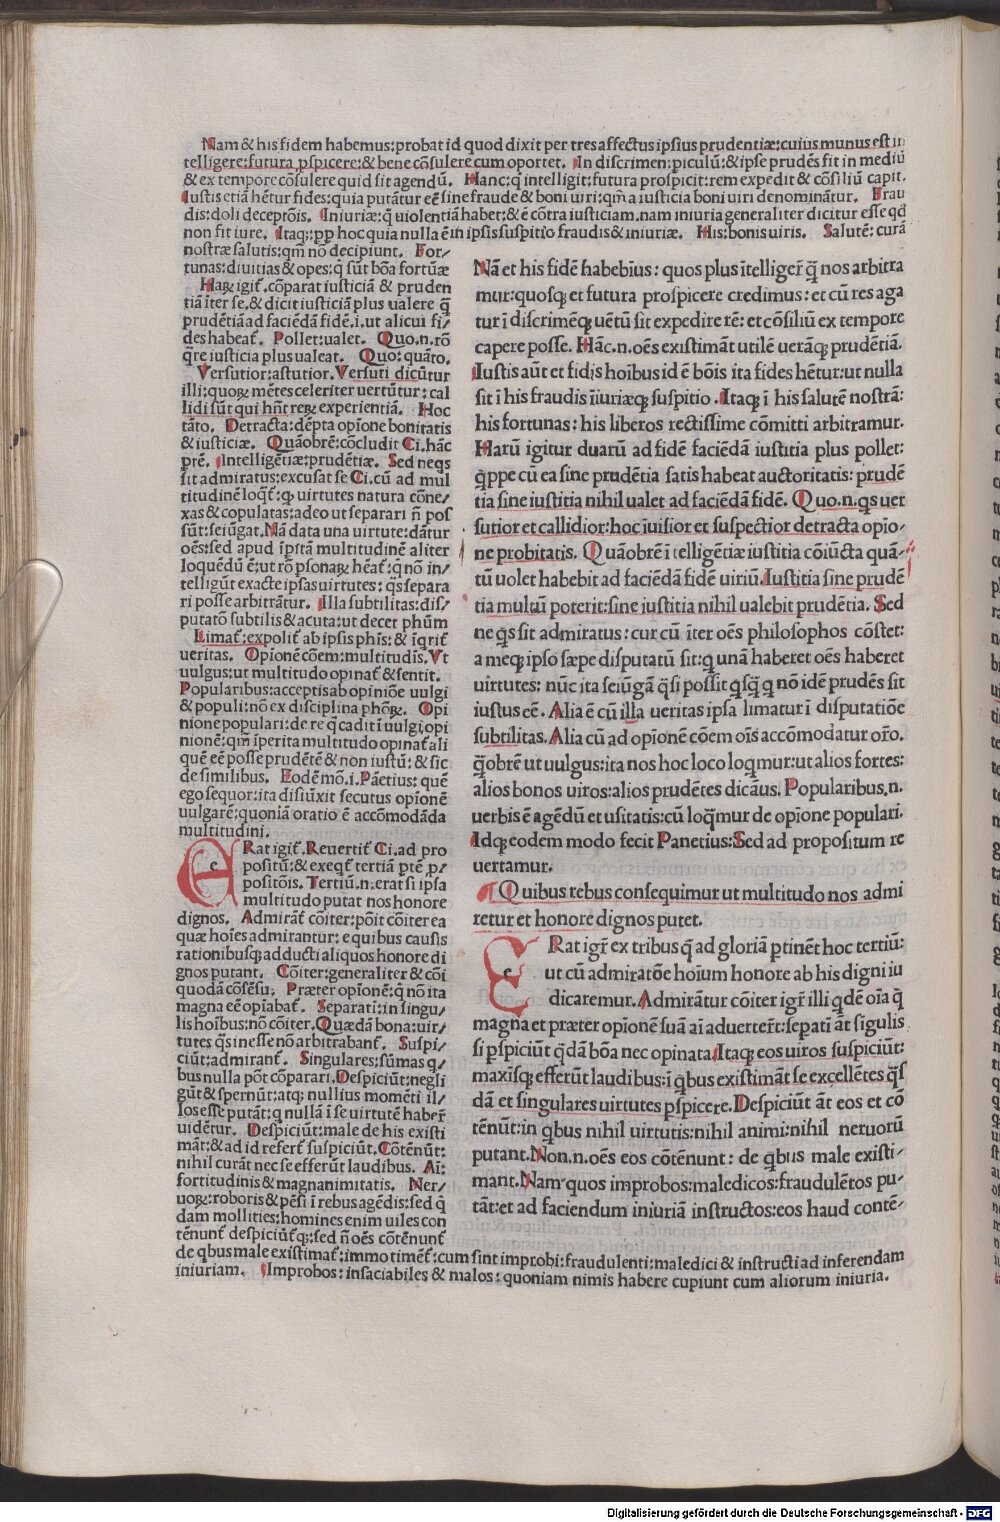 Nam & his fidem habemus: probat id quod dixit per tres affectus ipsius prudentiæ: cuius munus est in
telligere: futura ꝓspicere: & bene cõsulere cum oportet. In discrimen: piculũ: & ipse prudẽs fit in mediũ
& ex tempore cõsulere quid sit agendũ. Hanc: q̃ intelligit: futura prospicit: rem expedit & cõsiliũ capit.
Iustis etiã hẽtur fides: quia putãtur eẽ sine fraude & boni uiri: qm̃ a iusticia boni uiri denominãtur. Frau
dis: doli deceptõis. Iniuriæ: q̃ uiolentiã habet: & ẽ cõtra iusticiam. nam iniuria generaliter dicitur esse qd
non fit iure. Itaq;: ꝓꝑ hoc quia nulla ẽ in ipsis suspitio fraudis & iniuriæ. His: bonis uiris. Salutẽ: curã
nostræ salutis: qm̃ nõ decipiunt. For/
tunas: diuitias & opes: q̃ sũt bõa fortũæ
Haꝝ igit̃. cõparat iusticiã & pruden
tiã ĩter se, & dicit iusticiã plus ualere q̃
prudẽtiã ad faciẽdã fidẽ .i. ut alicui fi/
des habeat̃. Pollet: ualet. Quo .n. rõ
q̃re iusticia plus ualeat. Quo: quãto.
Versutior: astutior. Versuti dicũtur
illi: quoꝝ mẽtes celeriter uertũtur: cal
lidi sũt qui hñt reꝝ experientiã. Hoc
tãto. Detracta: dẽpta opĩone bonitatis
& iusticiæ. Quãobrẽ: cõcludit Ci. hãc
ptẽ. Intelligẽtiæ: prudẽtiæ. Sed neqs
sit admiratus: excusat se Ci. cũ ad mul
titudinẽ loq̃t̃: ꝙ uirtutes natura cõne/
xas & copulatas: adeo ut separari ñ pos
sũt: seiũgat. Nã data una uirtute: dãtur
oẽs: sed apud ĩpĩtã multitudinẽ aliter
loquẽdũ ẽ: ut rõ psonaꝝ hẽat̃: q̃ nõ in/
telligũt exacte ipsas uirtutes: q̃s separa
ri posse arbitrãtur. Illa subtilitas: dis/
putatõ subtilis & acuta: ut decet phũm
Limat̃: expolit̃ ab ipsis phĩs: & ĩq̃rit̃
ueritas. Opionẽ cõem: multitudĩs. Vt
uulgus: ut multitudo opinat̃ & sentit.
Popularibus: acceptis ab opiniõe uulgi
& populi: nõ ex disciplina phõꝝ. Opi
nione populari: de re q̃ cadit ĩ uulgi opi
nionẽ: qm̃ ĩperita multitudo opinat̃ ali
quẽ eẽ posse prudẽtẽ & non iustũ: & sic
de similibus. Eodẽ mõ .i. Pãetius: quẽ
ego sequor: ita disiũxit secutus opĩonẽ
uulgarẽ: quoniã oratio ẽ accõmodãda
multitudini.
ERat igit̃. Reuertit̃ Ci. ad pro
positũ: & exeqt̃ tertiã ptẽ ꝓ/
positõis. Tertiũ .n. erat si ipsa
multitudo putat nos honore
dignos. Admirãt̃ cõiter: põit cõiter ea
quæ hoĩes admirantur: e quibus causis
rationibusq; adducti aliquos honore di
gnos putant. Cõiter: generaliter & cõi
quodã cõsẽsu. Præter opionẽ: q̃ nõ ita
magna eẽ opiabat̃. Separati: in singu/
lis hoĩbus: nõ cõiter. Quædã bona: uir/
tutes q̃s inesse nõ arbitrabant̃. Suspi/
ciũt: admirant̃. Singulares: sũmas q/
bus nulla põt cõparari. Despiciũt: negli
gũt & spernũt: atq; nullius momẽti il/
los esse putãt: q nullã ĩ se uirtutẽ haber̃
uidẽtur. Despiciũt: male de his existi
mãt: & ad id refert̃ suspiciũt. Cõtẽnũt:
nihil curãt nec se efferũt laudibus. Ai:
fortitudinis & magnanimitatis. Ner/
uoꝝ: roboris & pẽsi ĩ rebus agẽdis: sed q̃
dam mollities: homines enim uiles con
tẽnunt̃ despiciũt̃q;: sed ñ oẽs cõtẽnunt̃
Nã et his fidẽ habebĩus: quos plus ĩtelliger̃ q̃ nos arbitra
mur: quosq; et futura prospicere credimus: et cũ res aga
tur ĩ discrimẽq; uẽtũ sit expedire rẽ: et cõsiliũ ex tempore
capere posse. Hãc .n. oẽs existimãt utilẽ uerãq; prudẽtiã.
Iustis aũt et fidis hoĩbus id ẽ bõis ita fides hẽtur: ut nulla
sit ĩ his fraudis ĩiuriæq; suspitio. Itaq; ĩ his salutẽ nostrã:
his fortunas: his liberos rectissime cõmitti arbitramur.
Harũ igitur duarũ ad fidẽ faciẽdã iustitia plus pollet:
q̃ppe cũ ea sine prudẽtia satis habeat auctoritatis: prudẽ
tia sine iustitia nihil ualet ad faciẽdã fidẽ. Quo .n. qs uer
sutior et callidior: hoc ĩuisior et suspectior detracta opio/
ne probitatis. Quãobrẽ ĩtelligẽtiæ iustitia cõiũcta quã/
tũ uolet habebit ad faciẽdã fidẽ uiriũ. Iustitia sine prudẽ
tia multũ poterit: sine iustitia nihil ualebit prudẽtia. Sed
ne q̃s sit admiratus: cur cũ ĩter oẽs philosophos cõstet:
a meq; ipso sæpe disputatũ sit: q unã haberet oẽs haberet
uirtutes: nũc ita seiũgã q̃si possit qsq̃ q̃ nõ idẽ prudẽs sit
iustus eẽ. Alia ẽ cũ illa ueritas ipsa limatur ĩ disputatiõe
subtilitas. Alia cũ ad opĩonẽ cõem oĩs accõmodatur or̃o.
q̃obrẽ ut uulgus: ita nos hoc loco loqmur: ut alios fortes:
alios bonos uiros: alios prudẽtes dicãus. Popularibus .n.
uerbis ẽ agẽdũ et usitatis: cũ loq̃mur de opĩone populari.
Idq; eodem modo fecit Panetius: Sed ad propositum re
uertamur.
Quibus rebus consequimur ut multitudo nos admi
retur et honore dignos putet.
ERat igr̃ ex tribus q̃ ad gloriã ptinẽt hoc tertiũ:
ut cũ admiratõe hoĩum honore ab his digni iu
dicaremur. Admirãtur cõiter igr̃ illi q̃dẽ oĩa q̃
magna et præter opionẽ suã aĩ aduerter̃t: sepatĩ ãt sĩgulis
si pspiciũt q̃dã bõa nec opinata. Itaq; eos uiros suspiciũt:
maxĩsq; efferũt laudibus: ĩ qbus existimãt se excellẽtes q̃s
dã et singulares uirtutes pspicere. Despiciũt ãt eos et cõ
tẽnũt: in qbus nihil uirtutis: nihil animi: nihil neruorũ
putant. Non .n. oẽs eos cõtẽnunt: de qbus male existi/
mant. Nam quos improbos: maledicos: fraudulẽtos pu/
tãt: et ad faciendum iniuriã instructos: eos haud contẽ/
de qbus male existimat̃: immo timet̃: cum sint improbi: fraudulenti: maledici & instructi ad inferendam
iniuriam. Improbos: insaciabiles & malos: quoniam nimis habere cupiunt cum aliorum iniuria.
Digitalisierung gefördert durch die Deutsche Forschungsgemeinschaft - DFG